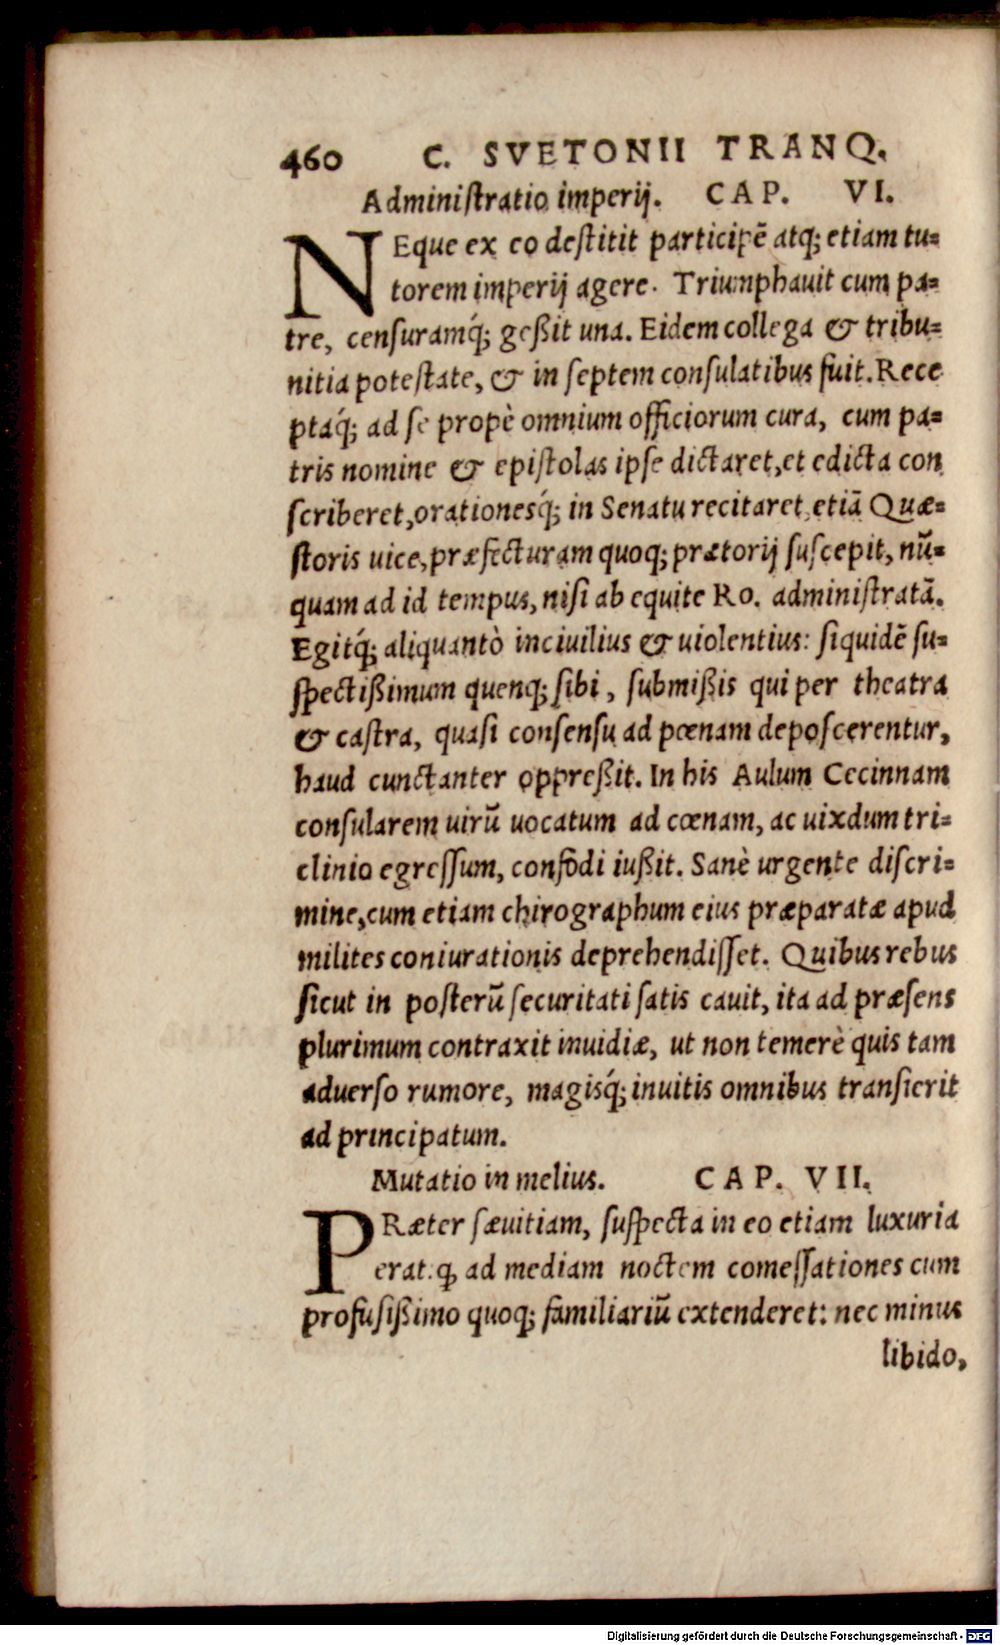 460 C. SVETONII TRANQ.
Adminiſtratio imperij. CAP. VI.
NEque ex eo deſtitit participē atq; etiam tu=
torem imperij agere. Triumphauit cum pa=
tre, cenſuramq́; geßit una. Eidem collega & tribu=
nitia poteſtate, & in ſeptem conſulatibus fuit. Rece
ptaq́; ad ſe propè omnium officiorum cura, cum pa=
tris nomine & epiſtolas ipſe dictaret, et edicta con
ſcriberet, orationesq́; in Senatu recitaret, etiā Quæ=
ſtoris uice, præfecturam quoq; prætorij ſuſcepit, nū=
quam ad id tempus, niſi ab equite Ro. adminiſtratā.
Egitq́; aliquantò inciuilius & uiolentius: ſiquidē ſu=
ſpectißimum quenq; ſibi, ſubmißis qui per theatra
& caſtra, quaſi conſenſu ad pœnam depoſcerentur,
haud cunctanter oppreßit. In his Aulum Cecinnam
conſularem uirū uocatum ad cœnam, ac uixdum tri=
clinio egreſſum, confōdi iußit. Sanè urgente diſcri=
mine, cum etiam chirographum eius præparatæ apud
milites coniurationis deprehendiſſet. Quibus rebus
ſicut in poſterū ſecuritati ſatis cauit, ita ad præſens
plurimum contraxit inuidiæ, ut non temerè quis tam
aduerſo rumore, magisq́; inuitis omnibus tranſierit
ad principatum.
Mutatio in melius. CAP. VII.
PRæter ſæuitiam, ſuſpecta in eo etiam luxuria
erat. ꝙ ad mediam noctem comeſſationes cum
profuſißimo quoq; familiariū extenderet: nec minus
libido,
Digitalisierung gefördert durch die Deutsche Forschungsgemeinschaft - DFG